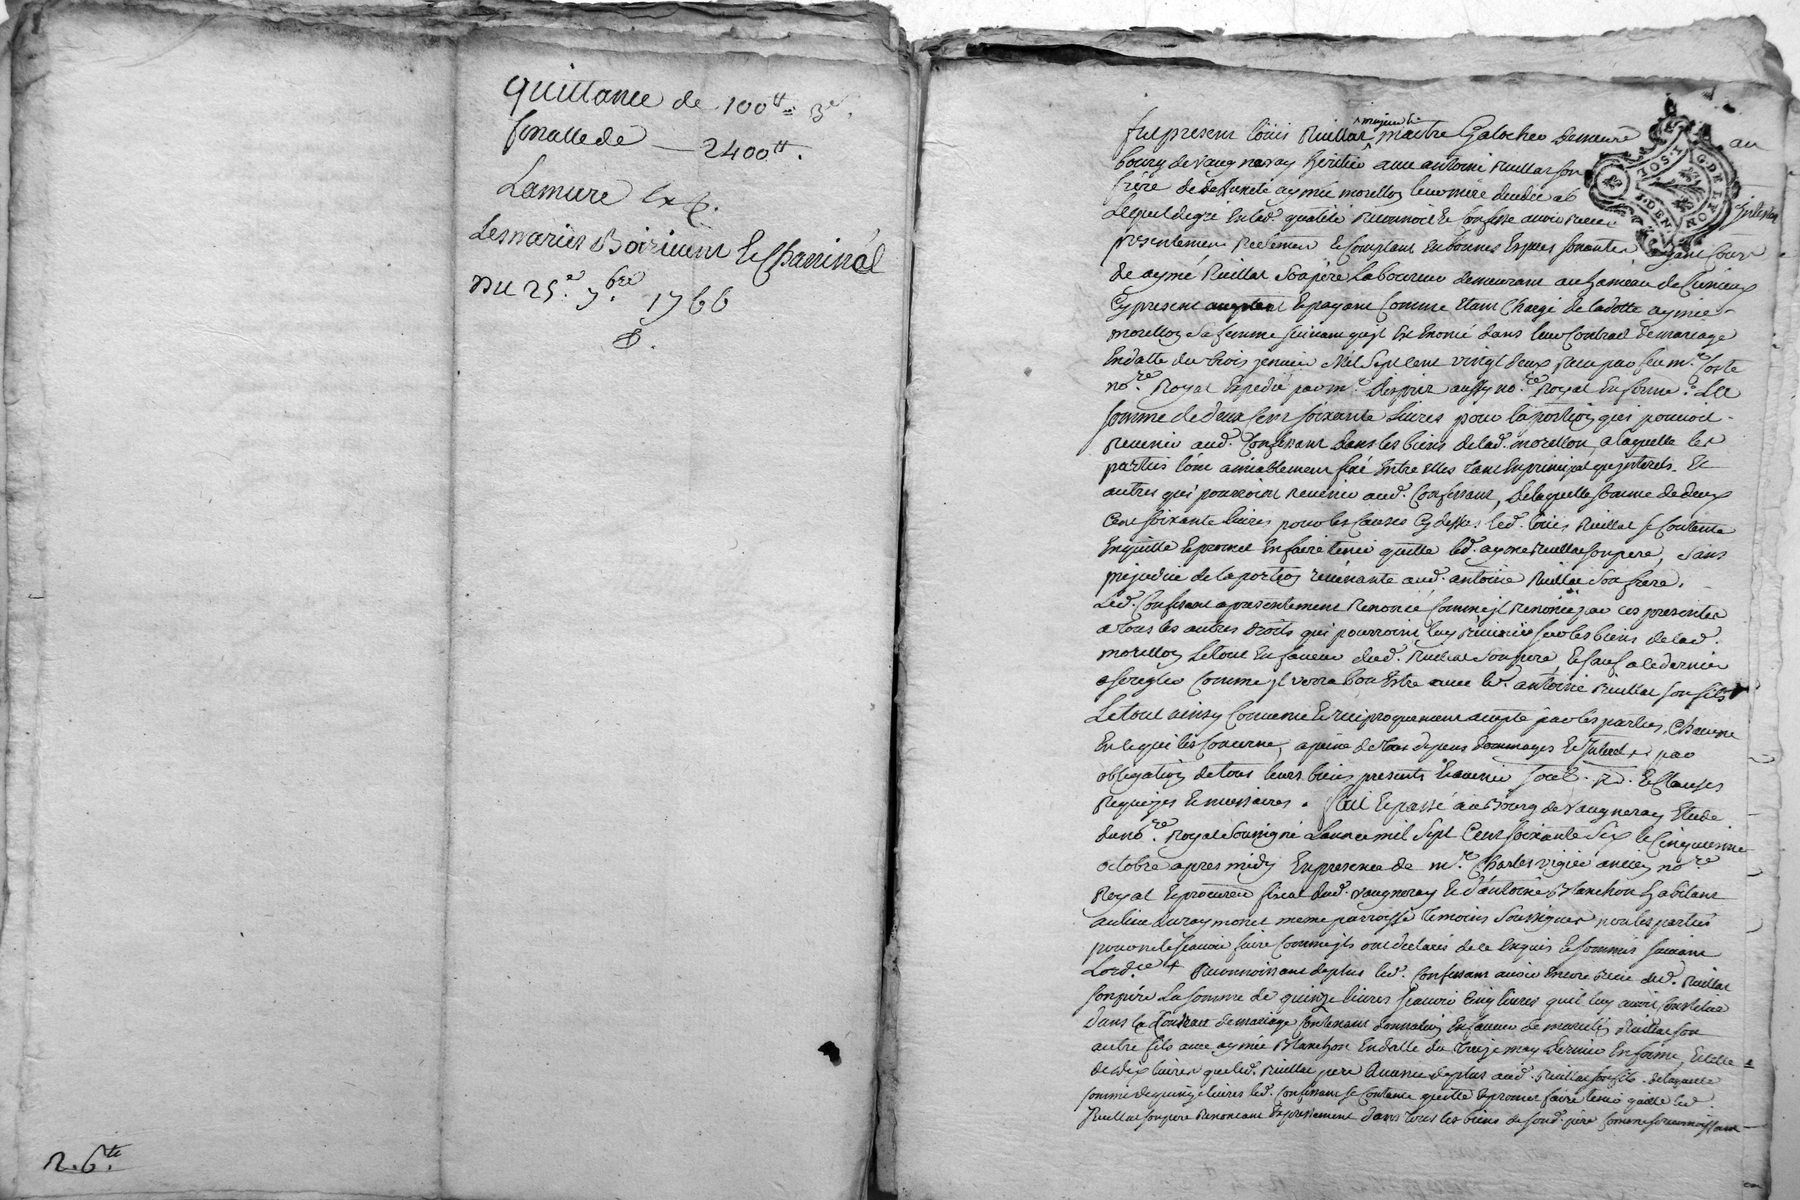 quittance de 100tt
finalle de — 2400tt.
Lamure
Les mariés Boiriven et Chaninel
Du 25e. 7bre 1766
R. 6tt
fut present Loüis Ruillat majeur maitre galocher demeurt au
bourg de Vaugneray heritier avec antoine Ruillat son
frere de deffunte aymée morellon leur mere decedée ab
presentement reelement et comptant en bonnes especes sonantes ayant cours
de aymé Ruillat son père Laboureur demeurant au hameau de
Cy present et payant Comme etant Chargé de la dotte aymée
morellon sa femme suivant qu'jl est enoncé dans leur Contract de mariage
En datte du trois janvier Mil Sept Cent vingt deux receu par feu me. Coste
nore. Royal Expedié par me. aussy nore. Royal En forme. La
somme de deux Cent soixante Livres pour la portion qui pouvoit
revenir aud. Confessant dans les biens de lad. morellon, a laquelle les
parties l'ont amiablement fixé entre elles tant en principal que jnterets Et
autres qui pourroint revenir aud. Confessant, de laquelle somme de deux
Cent soixante Livres pour les Causes Cy dessus led. Loüis Ruillat se Contente
En quitte et promet En faire tenir quitte led. aymé Ruillat son pere, sans
prejudice de la portion revenante aud. antoine Ruillat son frere.
Led. Confessant a presentement Renoncé Comme jl Renonce par ces presentes
a tous les autres droits qui pourroint luy revenir sur les biens de lad.
morellon Le tout En faveur dud. Ruillat son pere, et sauf a ce dernier
a se regler Comme jl verra bon Estre avec led. antoine Ruillat son fils
Le tout ainsy Convenu et reciproquement accepté par les parties, Chacune
En ce qui les Concerne, a peine de tous depens dommages et jnterets par
obligation de tous leurs biens presents et avenir et Clauses
Requises et necessaires. Fait et passé au Bourg de Vaugneray Etude
du nore. Royal soussigné L'an mil Sept Cent soixante Six le Cinquieme
octobre apres midy En presence de me. Charles vigier ancien nore.
Royal et procureur fiscal dud. Vaugneray et d'antoine Blanchon habitant
au lieu du raymonet meme parroisse temoins soussignés non les parties
pour ne le sçavoir faire Comme jls ont declarés de ce Enquis et sommés suivant
Lordce + Reconnoissant de plus led. Confessant avoir encore receu dud. Ruillat
son père La somme de quinze livres sçavoir Cinq livres qu'il luy avoit Constitué
dans le Contract de mariage Contenant donnation En faveur de Ruillat son
autre fils avec aymée Blanchon En datte du treize may dernier En forme, Et celle
de dix livres que led. Ruillat pere de plus aud. Ruillat son fils. de laquelle
somme de quinze livres led. Confessant se Contente quitte et promet faire tenir quitte led.
Ruillat son pere Renoncant Expressement dans tous les biens de sond. père Comme se reconnoissant